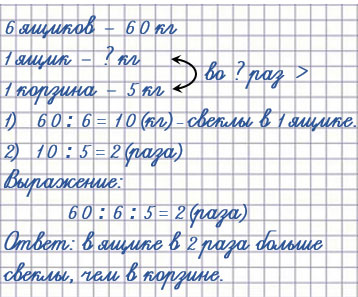 6 ящиков – 60 кг
1 ящик – ? кг
во ? раз >
1 корзина – 5 кг
1) 60 : 6 = 10 (кг) – свеклы в 1 ящике.
2) 10 : 5 = 2 (раза)
Выражение:
60 : 6 : 5 = 2 (раза)
Ответ: в ящике в 2 раза больше
свеклы, чем в корзине.